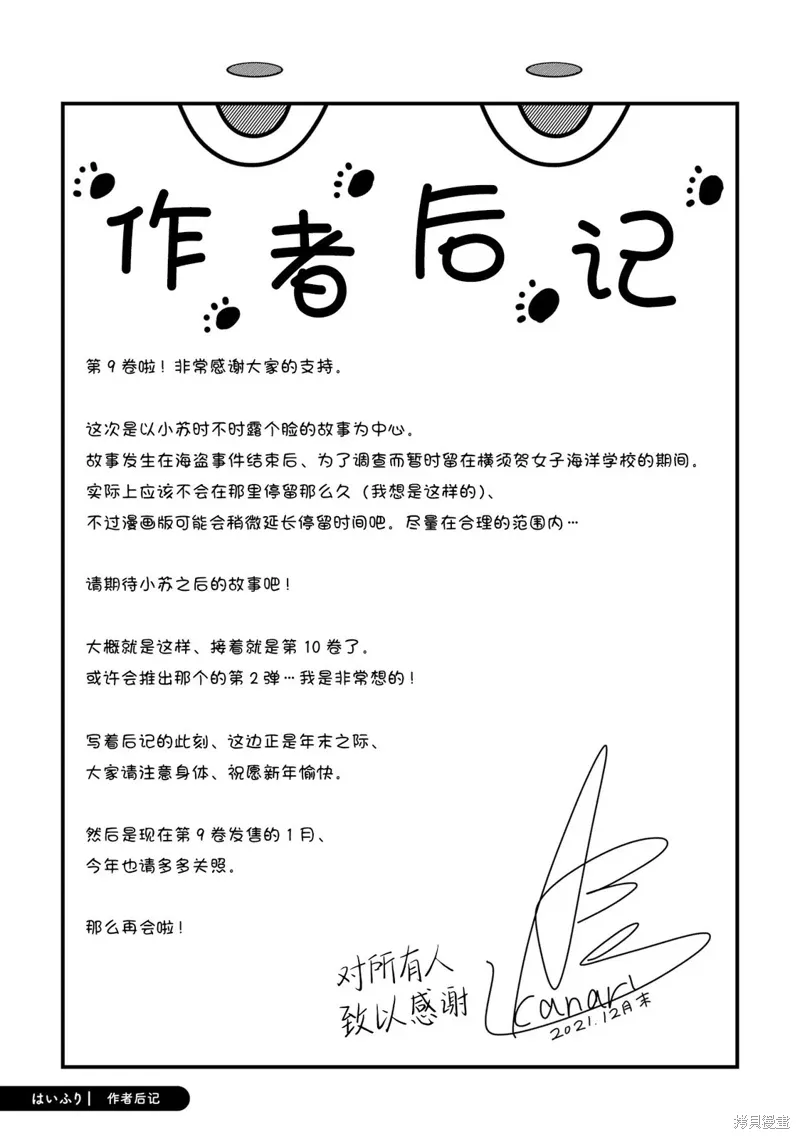 作者后记
第9卷啦！非常感谢大家的支持。
这次是以小苏时不时露个脸的故事为中心。
故事发生在海盗事件结束后、为了调查而暂时留在横须贺女子海洋学校的期间。
实际上应该不会在那里停留那么久（我想是这样的）、
不过漫画版可能会稍微延长停留时间吧。尽量在合理的范围内…
请期待小苏之后的故事吧！
大概就是这样、接着就是第10卷了。
或许会推出那个的第2弹…我是非常想的！
写着后记的此刻、这边正是年末之际、
大家请注意身体、祝愿新年愉快。
然后是现在第9卷发售的1月、
今年也请多多关照。
那么再会啦！
对所有人
致以感谢
canari
2021.12月末
はいふり| 作者后记
拷貝漫畫